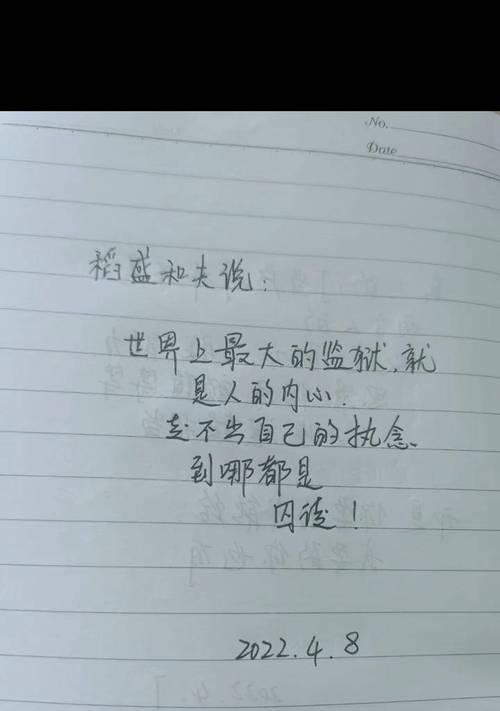 No.
Date
稻盛和夫说：
世界上最大的监狱，就
是人的内心．
走不出自己的执念、
到哪都是
囚徒！
2022.4.8